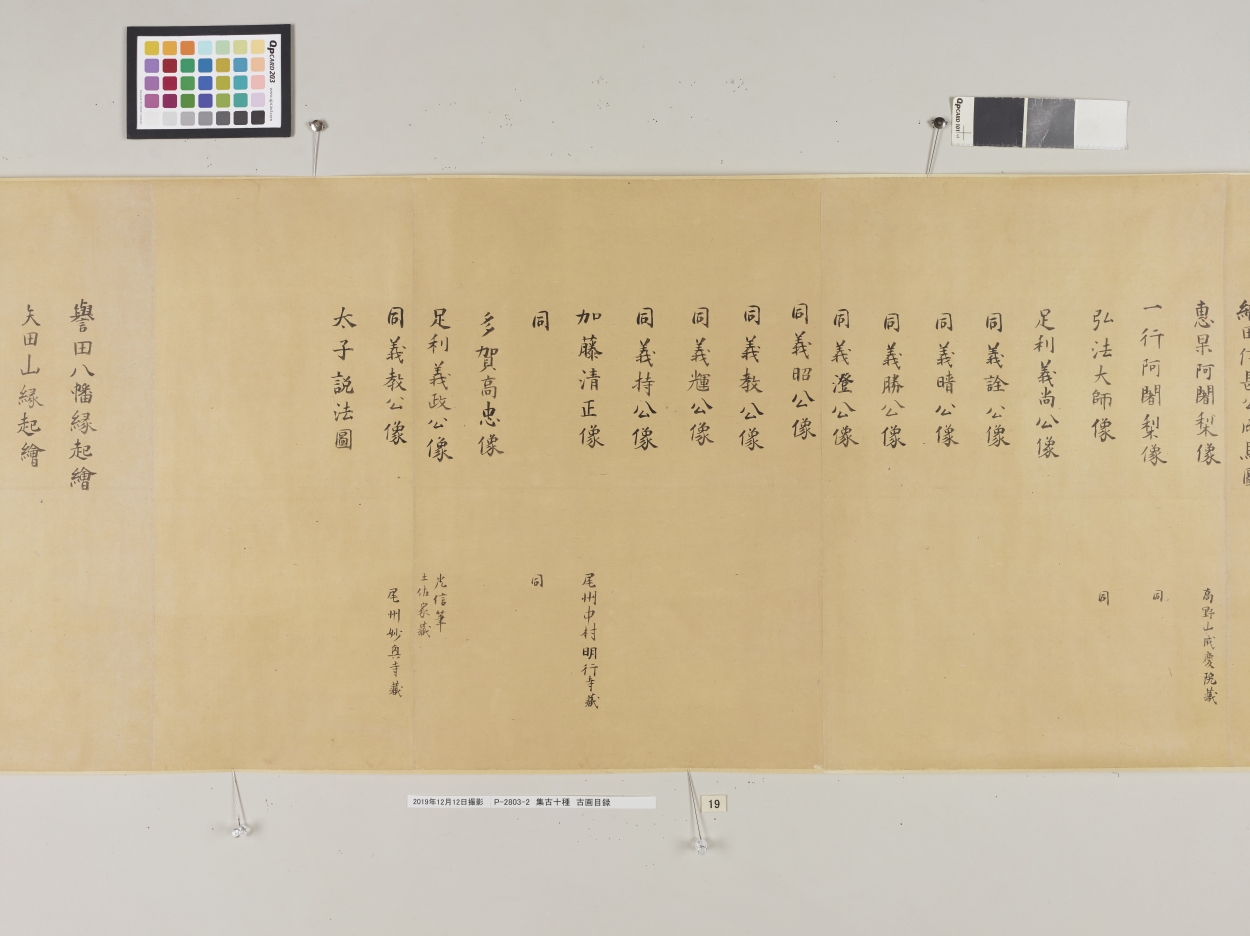 惠果阿闍梨像 高野山成慶院藏
一行阿闍梨像 同
弘法大師像 同
足利義尚公像
同義詮公像
同義晴公像
同義勝公像
同義澄公像
同義昭公像
同義教公像
同義輝公像
同義持公像
加藤清正像 尾州中村明行寺藏
同 同
多賀高忠像
足利義政公像 光信筆
土佐家藏
同義教公像 尾州妙興寺藏
太子説法圖
譽田八幡縁起繪
矢田山縁起繪
QPCARD 203
QPCARD 101
2019年12月12日撮影 P-2803-2 集古十種 古画目録
19